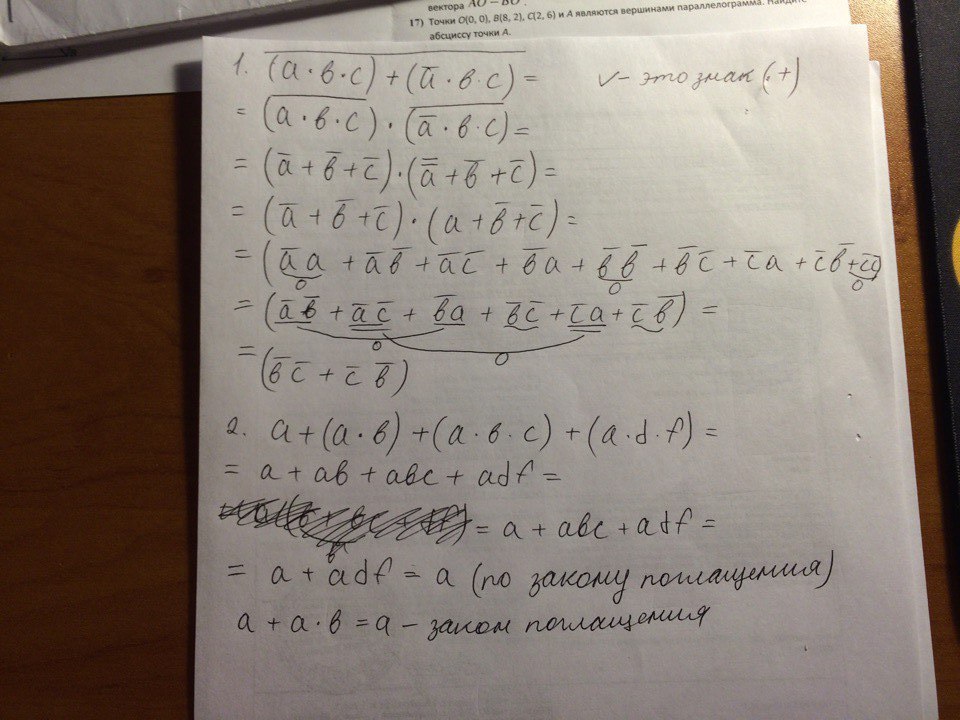 вектора AO − BO.
17) Точки O(0, 0), B(8, 2), C(2, 6) и A являются вершинами параллелограмма. Найдите
абсциссу точки A.
1. \overline{(a·в·c) + (a̅·в·c)} = v – это знак (+)
= \overline{(a·в·c)} · \overline{(a̅·в·c)} =
= (a̅ + в̅ + c̅)·(a̿ + в̅ + c̅) =
= (a̅ + в̅ + c̅)·(a + в̅ + c̅) =
= (a̅a + a̅в̅ + a̅c̅ + в̅a + в̅в̅ + в̅c̅ + c̅a + c̅в̅ + c̅c̅)
0 0 0
= (a̅в̅ + a̅c̅ + в̅a + в̅c̅ + c̅a + c̅в̅) =
0 0
= (в̅c̅ + c̅в̅)
2. a + (a·в) + (a·в·c) + (a·d·f) =
= a + aв + aвc + adf =
= a + aвc + adf =
= a + adf = a (по закону поглащения)
a + a·в = a – закон поглащения